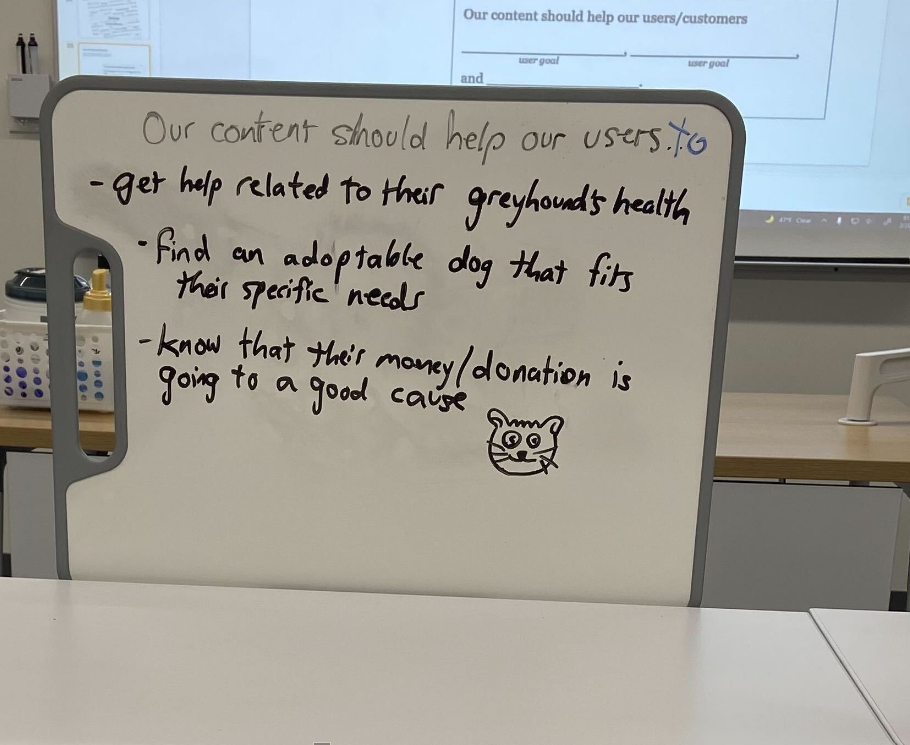 Our content should help our users/customers
user goal
user goal
and
47°F Clear
Our content should help our users.to
- get help related to their greyhound's health
- find an adoptable dog that fits
their specific needs
- know that their money/donation is
going to a good cause